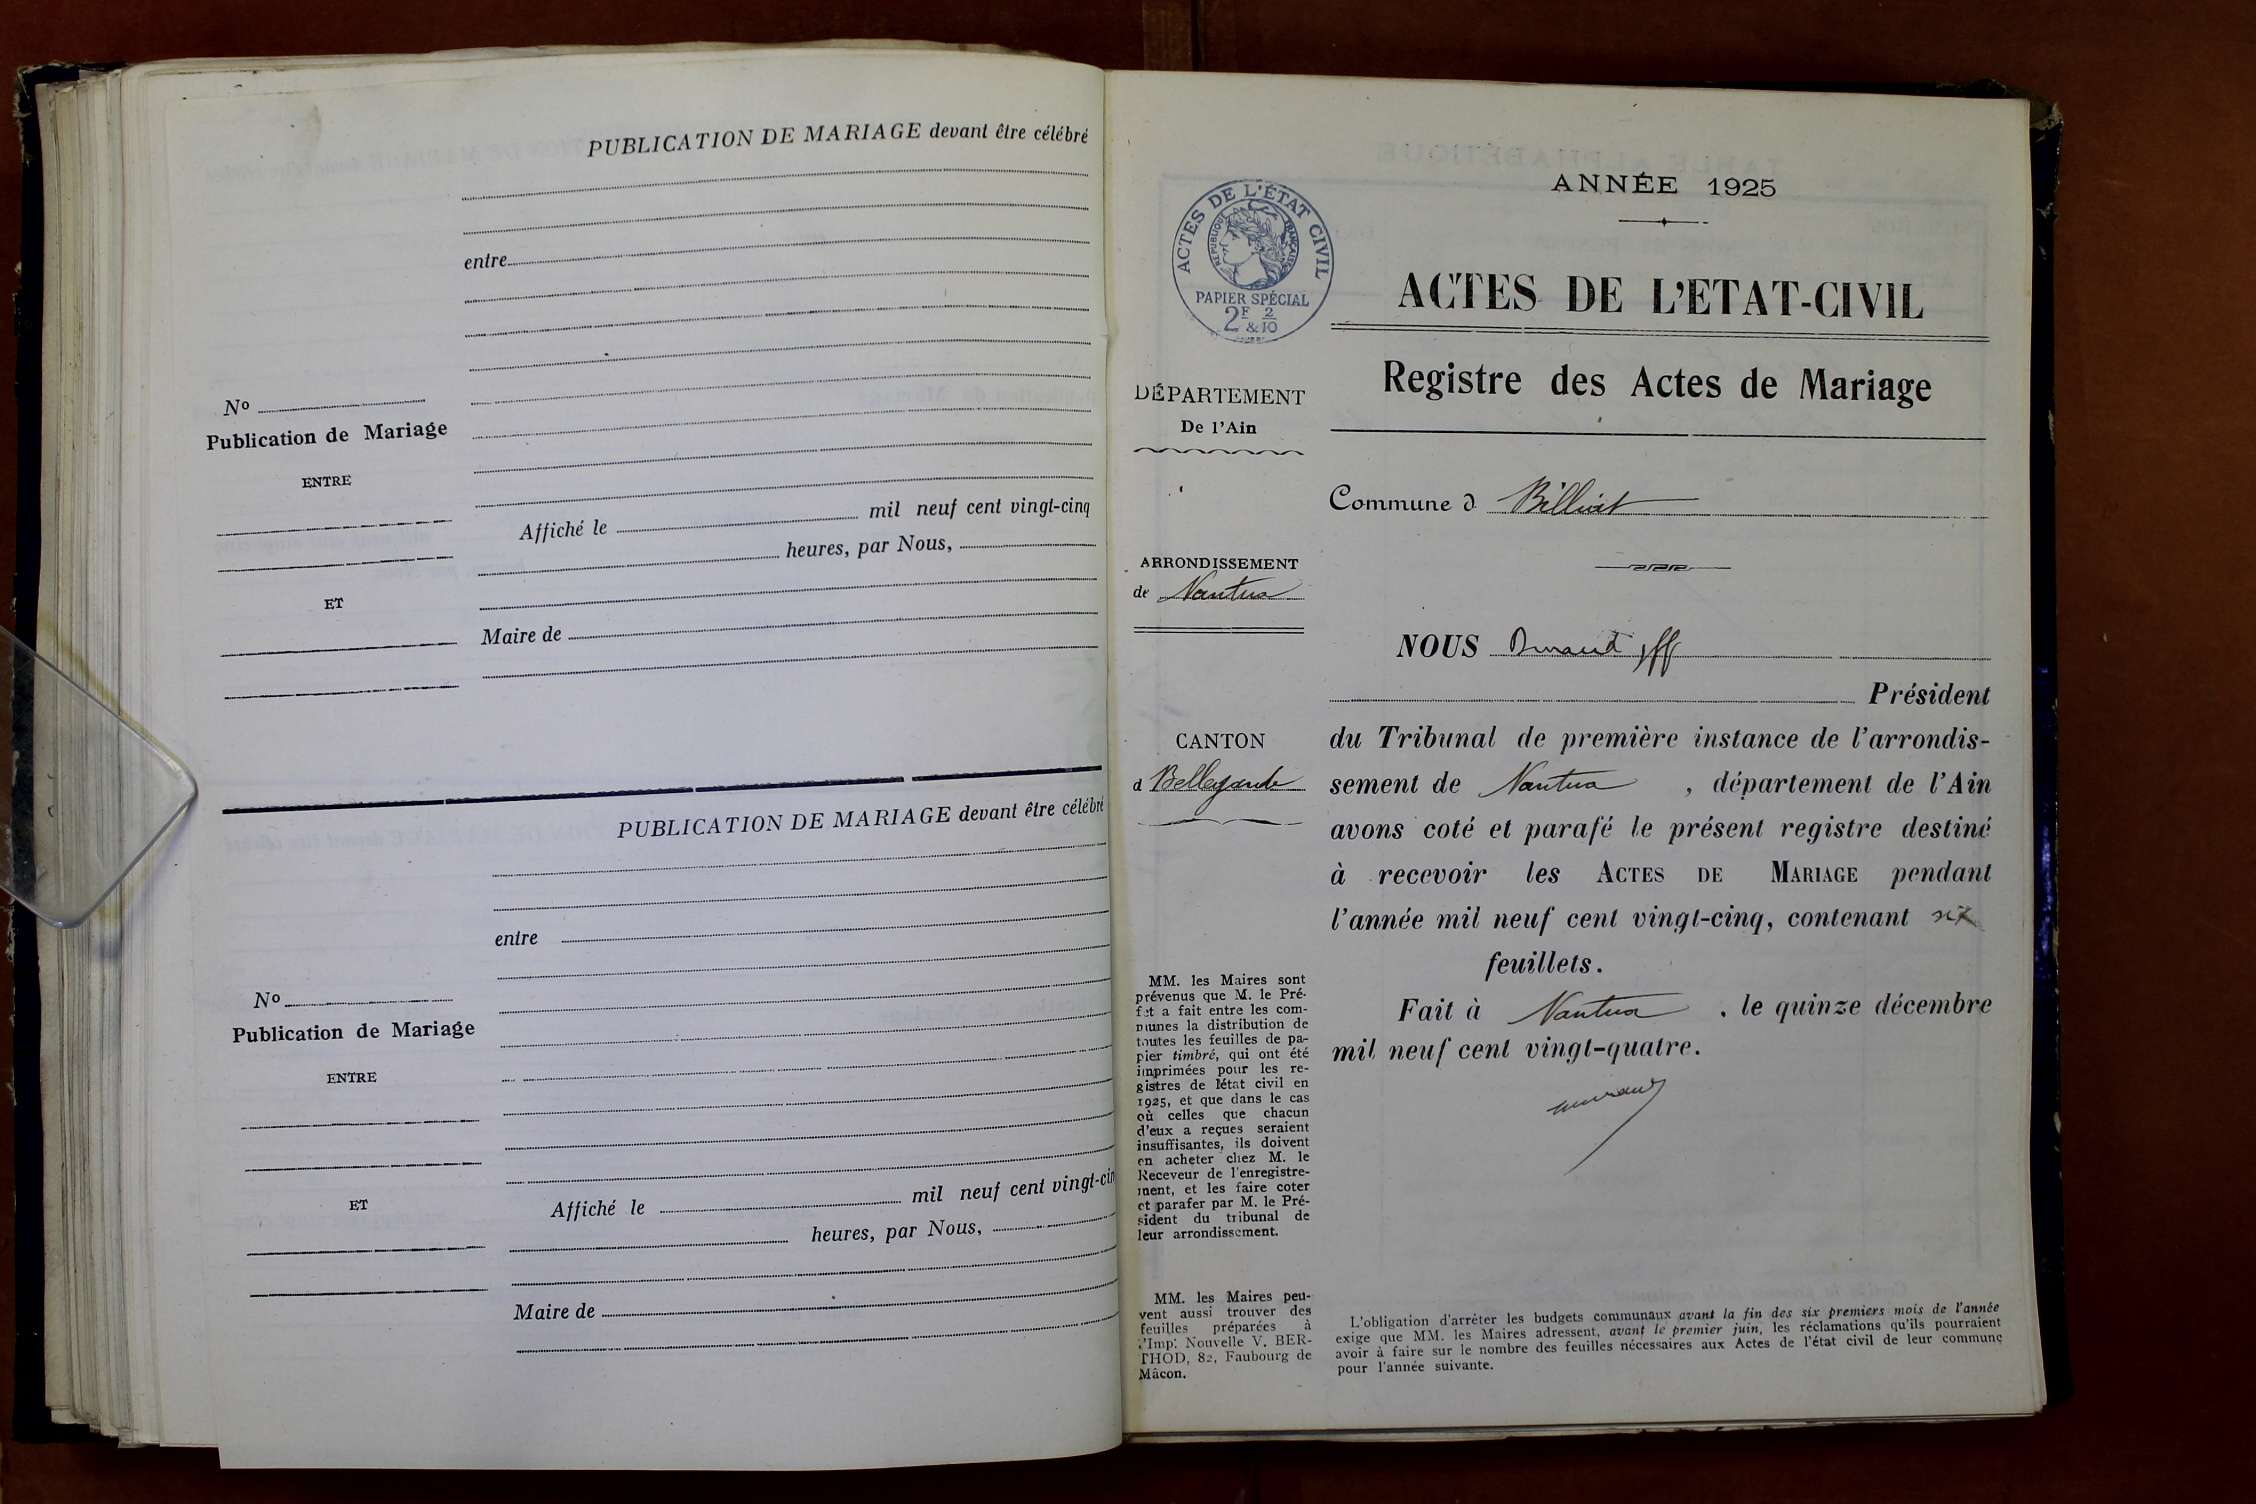 PUBLICATION DE MARIAGE devant être célébré
entre
No
Publication de Mariage
ENTRE
ET
Affiché le mil neuf cent vingt-cinq
heures, par Nous,
Maire de
PUBLICATION DE MARIAGE devant être célébré
entre
No
Publication de Mariage
ENTRE
ET
Affiché le mil neuf cent vingt-cin
heures, par Nous,
Maire de
ANNÉE 1925
ACTES DE L'ÉTAT CIVIL
RÉPUBLIQUE FRANÇAISE
PAPIER SPÉCIAL
2F 2
&10
ACTES DE L'ETAT-CIVIL
Registre des Actes de Mariage
DÉPARTEMENT
De l'Ain
Commune d Billiat
ARRONDISSEMENT
de Nantua
CANTON
d Bellegarde
NOUS
Président
du Tribunal de première instance de l'arrondis-
sement de Nantua, département de l'Ain
avons coté et parafé le présent registre destiné
à recevoir les ACTES DE MARIAGE pendant
l'année mil neuf cent vingt-cinq, contenant six
feuillets.
Fait à Nantua, le quinze décembre
mil neuf cent vingt-quatre.
MM. les Maires sont
prévenus que M. le Pré-
fet a fait entre les com-
munes la distribution de
toutes les feuilles de pa-
pier timbré, qui ont été
imprimées pour les re-
gistres de l'état civil en
1925, et que dans le cas
où celles que chacun
d'eux a reçues seraient
insuffisantes, ils doivent
en acheter chez M. le
Receveur de l'enregistre-
ment, et les faire coter
et parafer par M. le Pré-
sident du tribunal de
leur arrondissement.
MM. les Maires peu-
vent aussi trouver des
feuilles préparées à
l'Imp. Nouvelle V. BER-
THOD, 82, Faubourg de
Mâcon.
L'obligation d'arrêter les budgets communaux avant la fin des six premiers mois de l'année
exige que MM. les Maires adressent, avant le premier juin, les réclamations qu'ils pourraient
avoir à faire sur le nombre des feuilles nécessaires aux Actes de l'état civil de leur commune
pour l'année suivante.